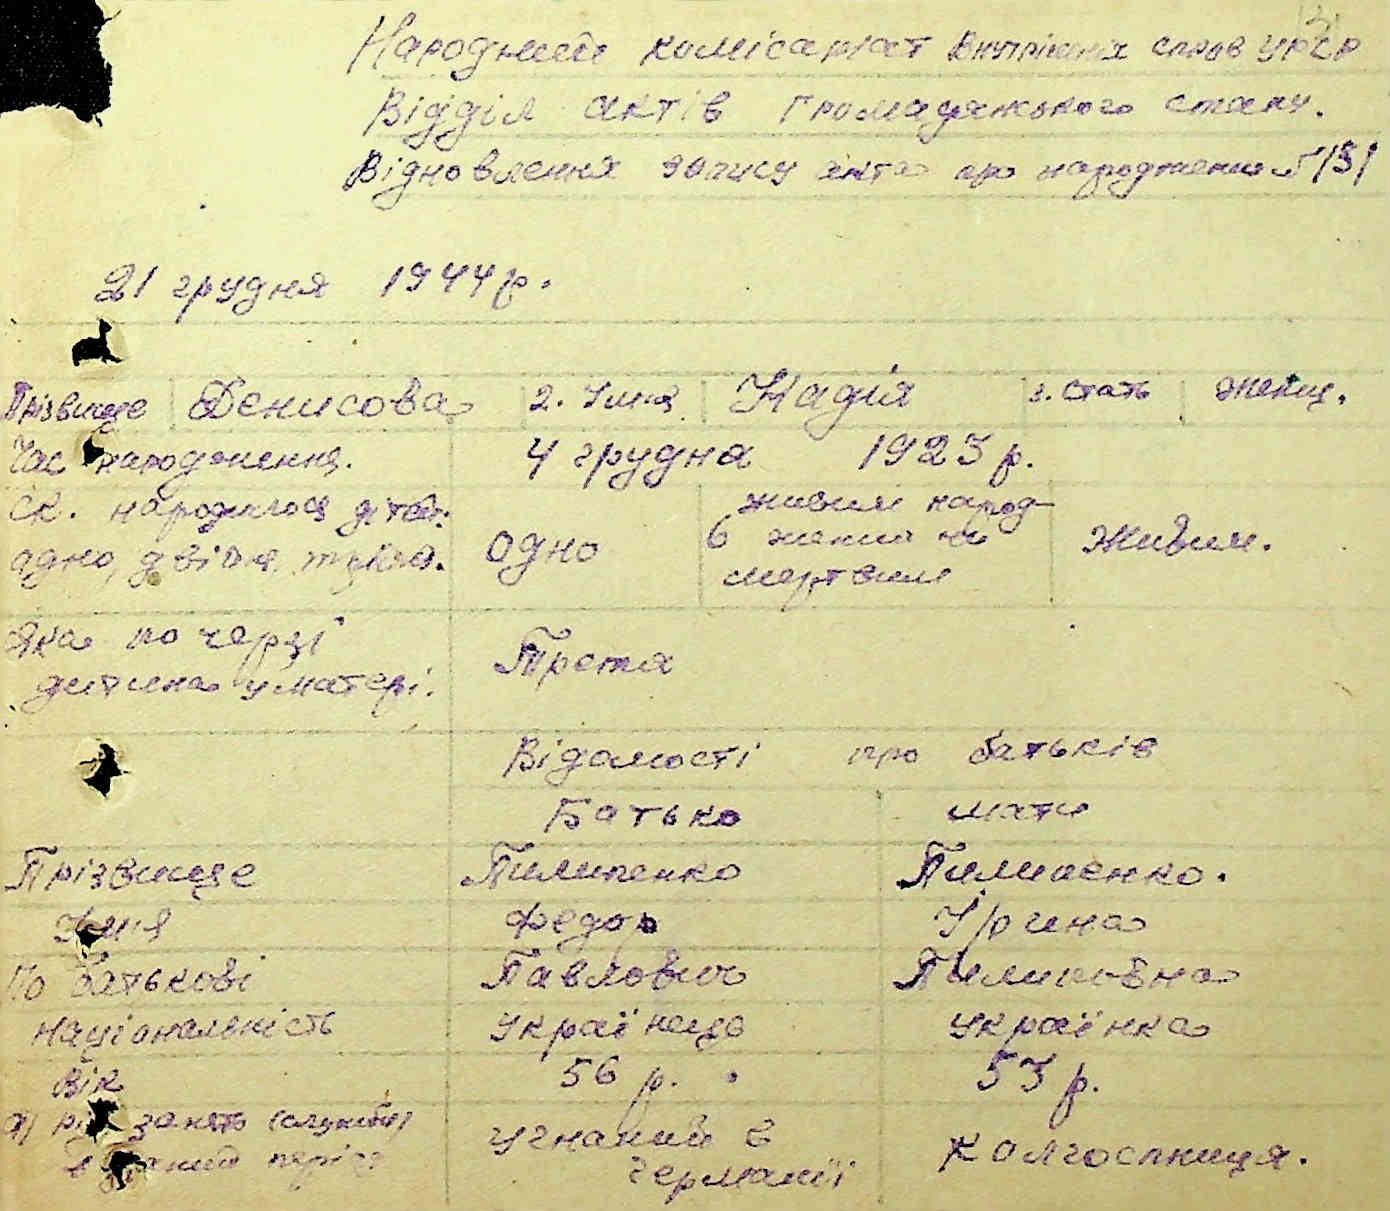 Народний комісаріат внутрішніх справ УРСР
Відділ актів громадянського стану.
Відновлення запису акта про народження № 131
21 грудня 1944 р.
Прізвище Денисова 2. Імя Надія 3. Стать женщ.
Час народження. 4 грудна 1923 р.
Ск. народилося дітей: живим народ-
одно, двійня, трійня. одно женим чи Живим.
мертвим
Яка по черзі
дитина у матері. Третя
Відомості про батьків
Батько мати
Прізвище Пилипенко Пилипенко.
Імя Федор Ірина
По батькові Павлович Пилиповна
національність українець українка
Вік 56 р. 53 р.
а) рід занять (служби) угнаний в
даний період Германії колгоспниця.